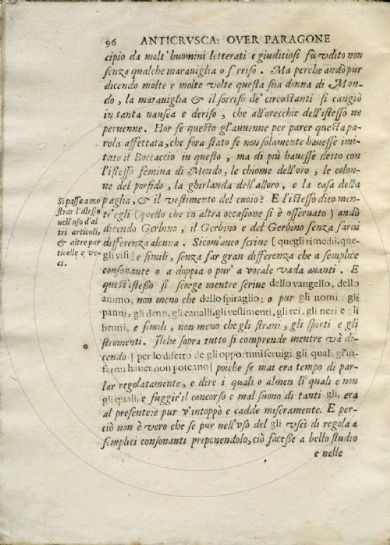 96 ANTICRVSCA: OVER PARAGONE
cipio da molt' huomini letterati e giuditiosi fù vdito non
senza qualche marauiglia o sorriso. Ma perche andò pur
dicendo molte e molte volte questa sua donna di Mon-
do, la marauiglia & il sorriso de' circostanti si cangiò
in tanta nausea e deriso, che all'orecchie dell'istesso ne
peruenne. Hor se questo gl'auuenne per parer questa pa-
rola affettata, che fora stato se non solamente hauesse imi-
tato il Boccaccio in questo, ma di più hauesse detto con
l'istesso femina di Mondo, le chiome dell'oro, le colon-
ne del porfido, la ghirlanda dell'alloro, e la casa della
paglia, & il vestimento del cuoio? E l'istesso dico men-
tr'egli (quello che in altra occasione si è osseruato) andò
dicendo Gerbino, il Gerbino e del Gerbino senza farui
differenza alcuna. Sicom'anco scriue [quegli rimedii, que-
gli viti] e simili, senza far gran differenza che a semplice
consonante o a doppia o pur' a vocale vada auanti. E
quest'istesso si scorge mentre scriue dello vangello, dello
animo, non meno che dello spiraglio; o pur gli nomi gli
panni, gli denti, gli caualli, gli vestimenti, gli rei, gli neri e gli
bruni, e simili, non meno che gli strani, gli spirti e gli
stromenti. Ilche sopra tutto si comprende mentre và di-
cendo [per lo difetto de gli opportuni seruigi gli quali gl'in-
fermi hauer non poteano] poiche se mai era tempo di par-
lar regolatamente, e dire i quali o almen li quali e non
gli quali, e fuggir'il concorso e mal suono di tanti gli, era
al presente: e pur v'intoppò e cadde miseramente. E per-
ciò non è vero che se pur nell'vso del gli vscì di regola a
semplici consonanti preponendolo, ciò facesse a bello studio
e nelle
Si passa a mo
strar l'istesso
nell'vso d'al
tri articoli,
& altre par
ticelle e vo-
ci.